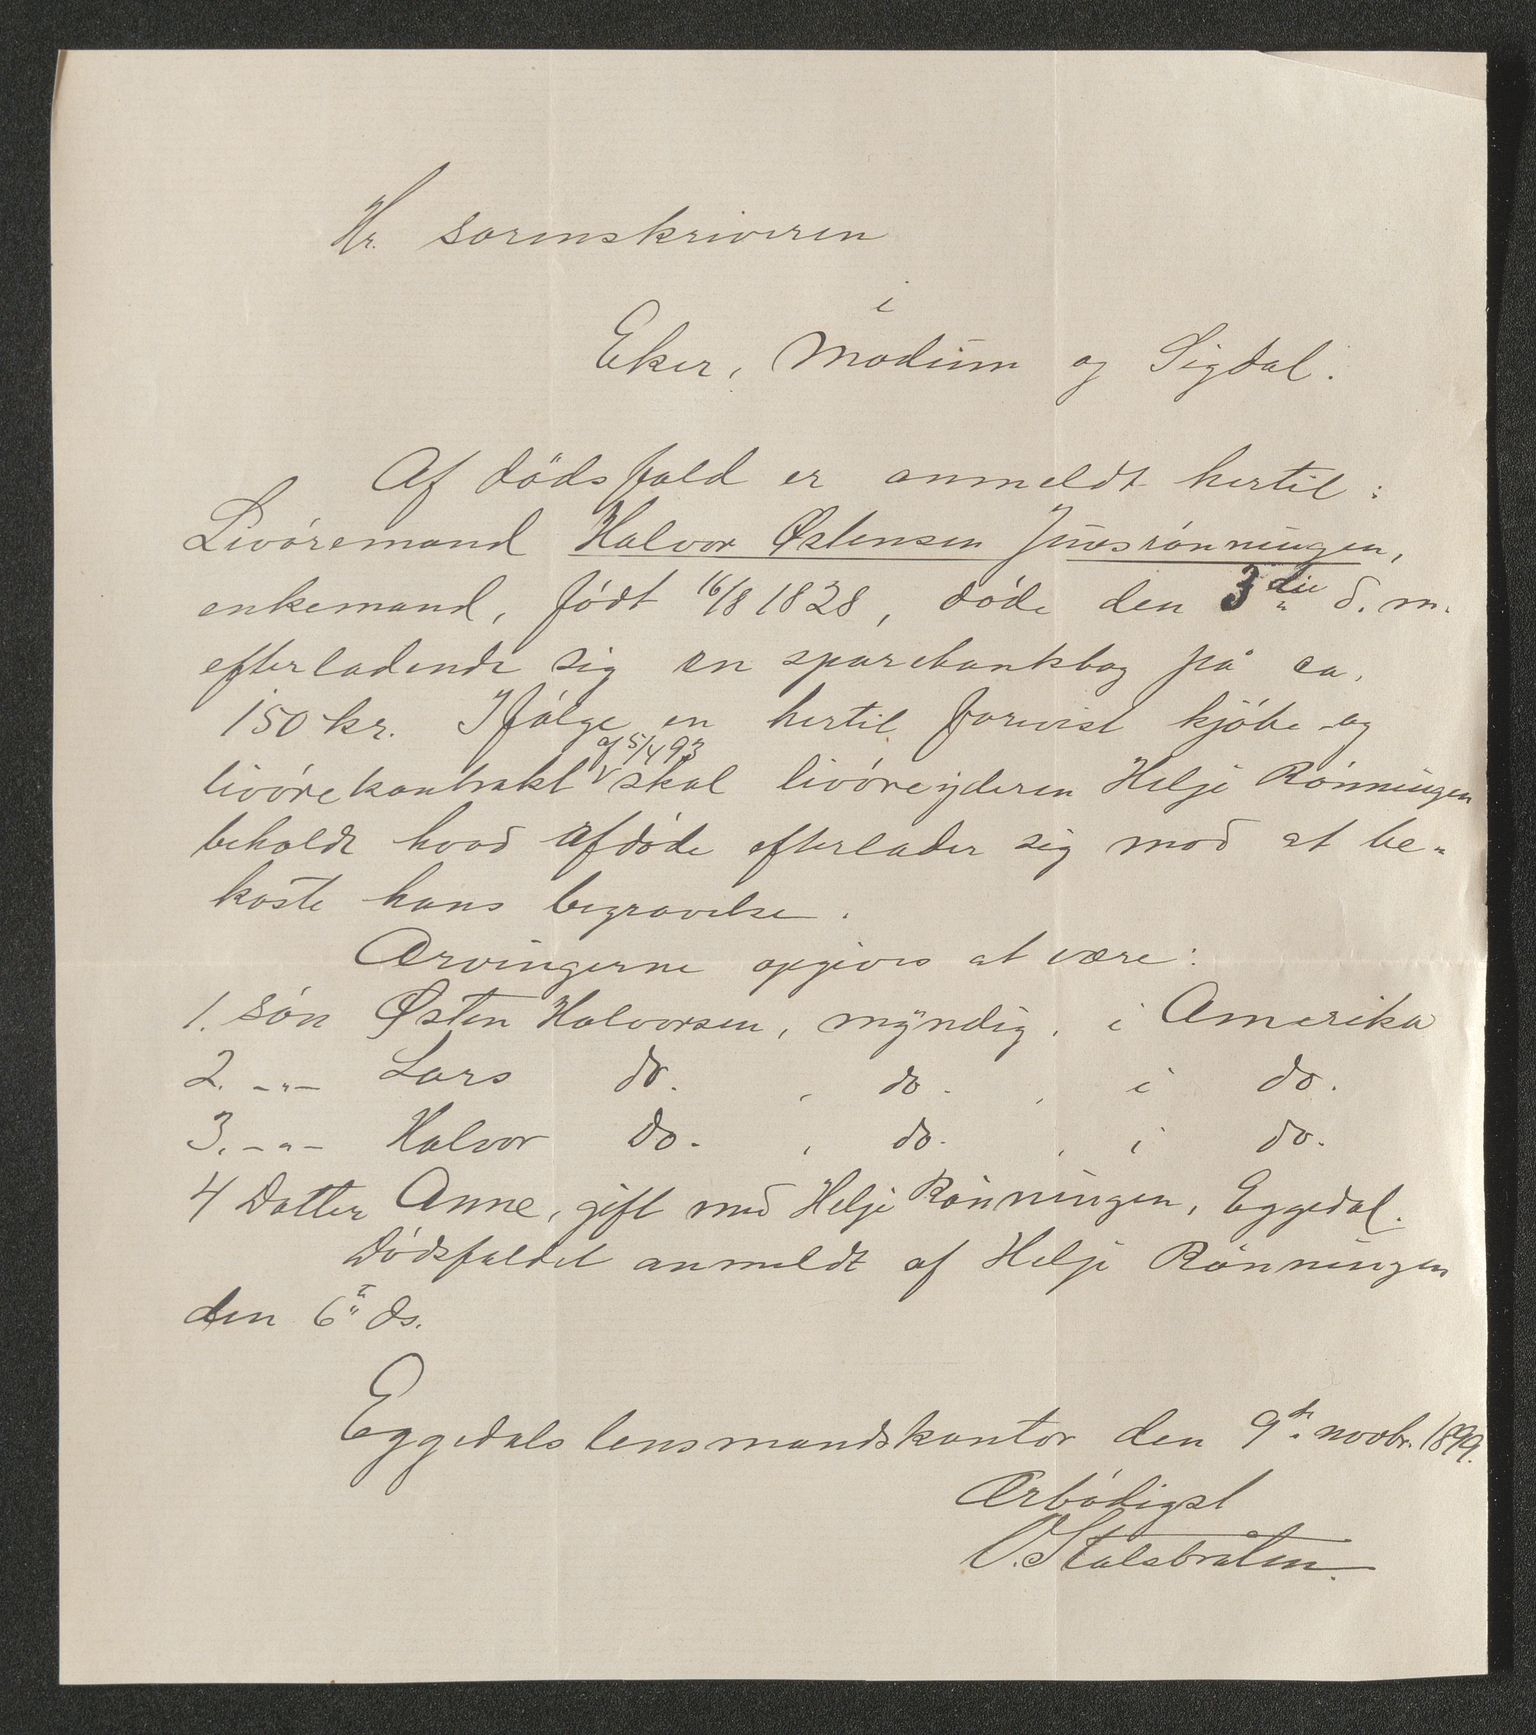 Hr. sorenskriveren
i
Eker, Modum og Sigdal.
Af dödsfald er anmeldt hertil:
Livöremand Halvor Østensen Juvsrönningen,
enkemand, född 16/8 1828, döde den 3die d. m.
efterladende sig en sparebankbog på ca.
150 kr. Ifölge en hertil forevist kjöbe og
livörekontrakt af 5/4 93 skal livöreyderen Helje Rönningen
beholde hvad afdöde efterlader sig mod at be-
koste hans begravelse.
Arvingerne opgives at være:
1. sön Østen Halvorsen, myndig, i Amerika
2. -"- Lars do. , do. , i do.
3. -"- Halvor do. , do. , i do.
4 Datter Anne, gift med Helje Rönningen, Eggedal.
Dödsfaldet anmeldt af Helje Rönningen
den 6te ds.
Eggedals lensmandskontor den 9de novbr. 1899.
Ærbödigst
O. Stalsbråten.